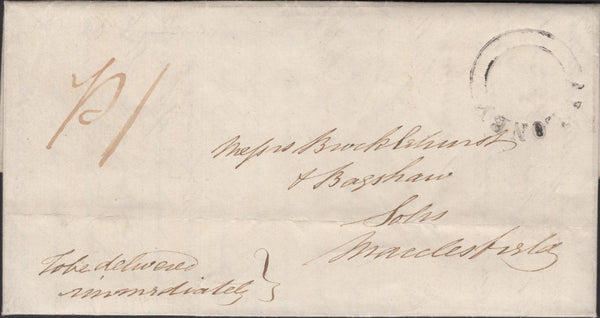 P1/
Messrs Brocklehurst
& Bagshaw
Solrs
Macclesfield
To be delivered
immediately